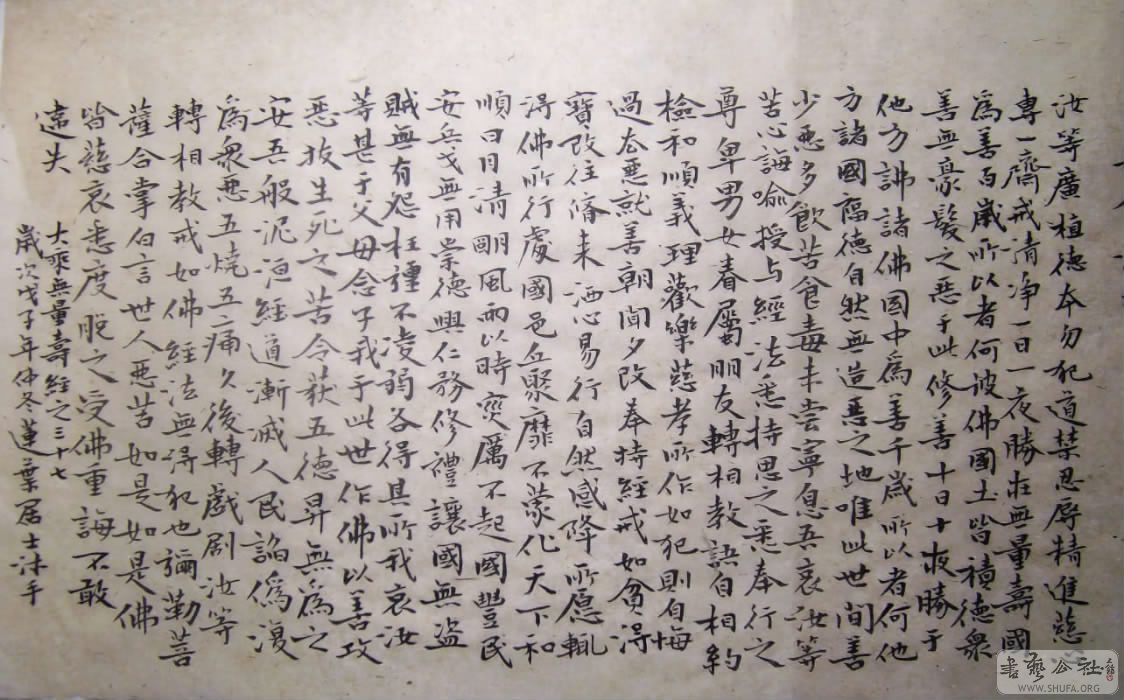 汝等廣植德本勿犯道禁忍辱精進慈
專一齋戒清淨一日一夜勝在無量壽國
為善百歲所以者何彼佛國土皆積德衆
善無豪髮之惡于此修善十日十夜勝于
他方諸佛國中為善千歲所以者何他
方諸國福德自然無造惡之地唯此世間善
少惡多飲苦食毒未嘗寧息吾哀汝等
苦心誨喻授与經法悉持思之悉奉行之
尊卑男女眷屬朋友轉相教語自相約
檢和順義理歡樂慈孝所作如犯則自悔
過去惡就善朝聞夕改奉持經戒如貧得
寶改往脩来洒心易行自然感降所愿輒
得佛所行處國邑丘聚靡不蒙化天下和
順日月清明風雨以時灾厲不起國豐民
安兵戈無用崇德興仁務修禮讓國無盜
賊無有怨枉強不凌弱各得其所我哀汝
等甚于父母念子我于此世作佛以善攻
惡拔生死之苦令获五德昇無為之
安吾般泥洹經道漸滅人民諂偽復
為衆惡五燒五痛久後轉劇汝等
轉相教戒如佛經法無得犯也彌勒菩
薩合掌白言世人惡苦如是如是佛
皆慈哀悉度脫之受佛重誨不敢
違失
大乘無量壽經之三十七
歲次戊子年仲冬蓮葉居士沐手
書藝公社
WWW.SHUFA.ORG